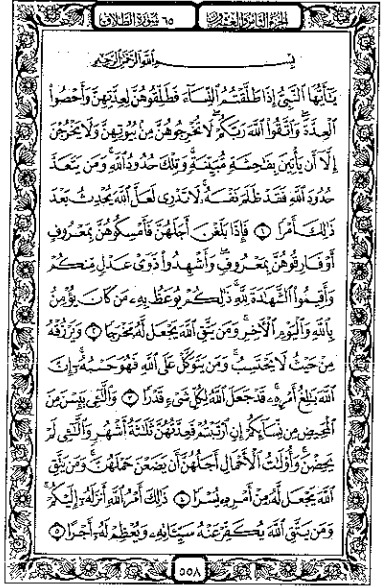 الجزء الثامن والعشرون
٦٥ سورة الطلاق
بِسْمِ اللَّهِ الرَّحْمَٰنِ الرَّحِيمِ
يَٰٓأَيُّهَا ٱلنَّبِىُّ إِذَا طَلَّقْتُمُ ٱلنِّسَآءَ فَطَلِّقُوهُنَّ لِعِدَّتِهِنَّ وَأَحْصُوا۟
ٱلْعِدَّةَ وَٱتَّقُوا۟ ٱللَّهَ رَبَّكُمْ لَا تُخْرِجُوهُنَّ مِنۢ بُيُوتِهِنَّ وَلَا يَخْرُجْنَ
إِلَّآ أَن يَأْتِينَ بِفَٰحِشَةٍ مُّبَيِّنَةٍ وَتِلْكَ حُدُودُ ٱللَّهِ وَمَن يَتَعَدَّ
حُدُودَ ٱللَّهِ فَقَدْ ظَلَمَ نَفْسَهُۥ لَا تَدْرِى لَعَلَّ ٱللَّهَ يُحْدِثُ بَعْدَ
ذَٰلِكَ أَمْرًا ١ فَإِذَا بَلَغْنَ أَجَلَهُنَّ فَأَمْسِكُوهُنَّ بِمَعْرُوفٍ
أَوْ فَارِقُوهُنَّ بِمَعْرُوفٍ وَأَشْهِدُوا۟ ذَوَىْ عَدْلٍ مِّنكُمْ
وَأَقِيمُوا۟ ٱلشَّهَٰدَةَ لِلَّهِ ذَٰلِكُمْ يُوعَظُ بِهِۦ مَن كَانَ يُؤْمِنُ
بِٱللَّهِ وَٱلْيَوْمِ ٱلْءَاخِرِ وَمَن يَتَّقِ ٱللَّهَ يَجْعَل لَّهُۥ مَخْرَجًا ٢ وَيَرْزُقْهُ
مِنْ حَيْثُ لَا يَحْتَسِبُ وَمَن يَتَوَكَّلْ عَلَى ٱللَّهِ فَهُوَ حَسْبُهُۥٓ إِنَّ
ٱللَّهَ بَٰلِغُ أَمْرِهِۦ قَدْ جَعَلَ ٱللَّهُ لِكُلِّ شَىْءٍ قَدْرًا ٣ وَٱلَّٰٓـِٔى يَئِسْنَ مِنَ
ٱلْمَحِيضِ مِن نِّسَآئِكُمْ إِنِ ٱرْتَبْتُمْ فَعِدَّتُهُنَّ ثَلَٰثَةُ أَشْهُرٍ وَٱلَّٰٓـِٔى لَمْ
يَحِضْنَ وَأُو۟لَٰتُ ٱلْأَحْمَالِ أَجَلُهُنَّ أَن يَضَعْنَ حَمْلَهُنَّ وَمَن يَتَّقِ
ٱللَّهَ يَجْعَل لَّهُۥ مِنْ أَمْرِهِۦ يُسْرًا ٤ ذَٰلِكَ أَمْرُ ٱللَّهِ أَنزَلَهُۥٓ إِلَيْكُمْ
وَمَن يَتَّقِ ٱللَّهَ يُكَفِّرْ عَنْهُ سَيِّـَٔاتِهِۦ وَيُعْظِمْ لَهُۥٓ أَجْرًا ٥
٥٥٨